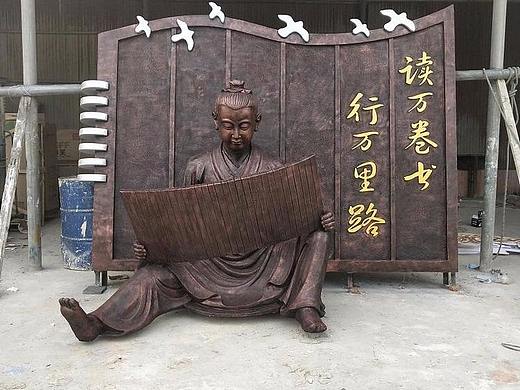 读万卷书
行万里路